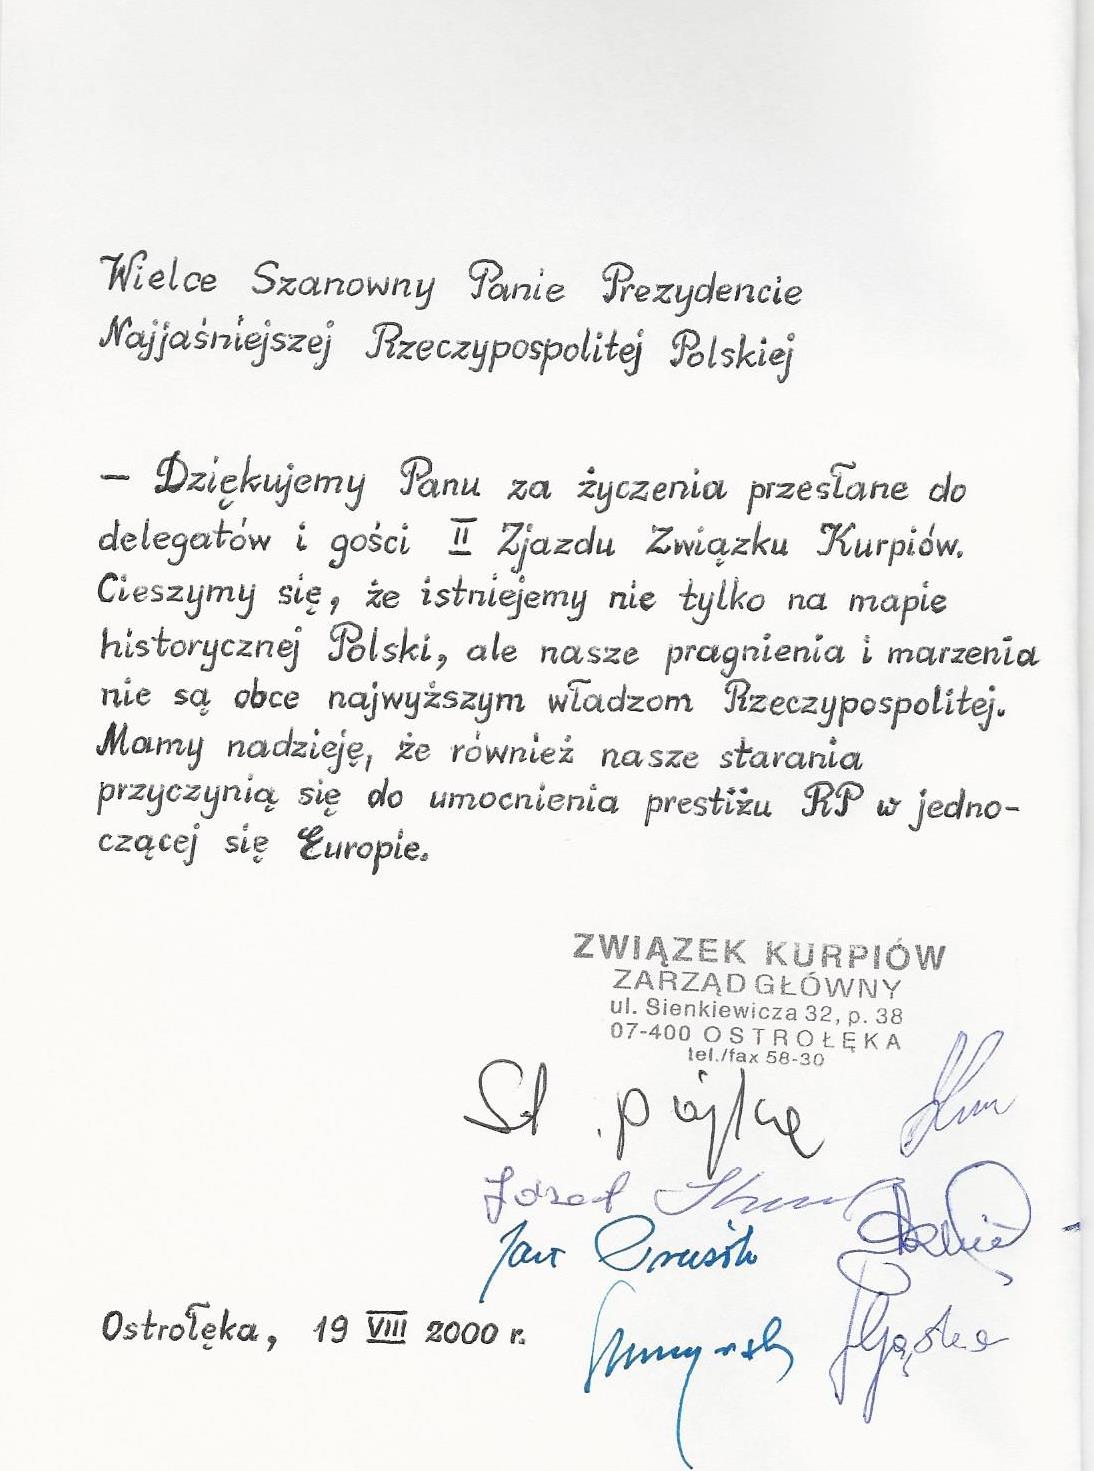 Wielce Szanowny Panie Prezydencie
Najjaśniejszej Rzeczypospolitej Polskiej
— Dziękujemy Panu za życzenia przesłane do
delegatów i gości II Zjazdu Związku Kurpiów.
Cieszymy się, że istniejemy nie tylko na mapie
historycznej Polski, ale nasze pragnienia i marzenia
nie są obce najwyższym władzom Rzeczypospolitej.
Mamy nadzieję, że również nasze starania
przyczynią się do umocnienia prestiżu RP w jedno-
czącej się Europie.
ZWIĄZEK KURPIÓW
ZARZĄD GŁÓWNY
ul. Sienkiewicza 32, p. 38
07-400 OSTROŁĘKA
tel./fax 58-30
Józef
Jan
Ostrołęka, 19 VIII 2000 r.